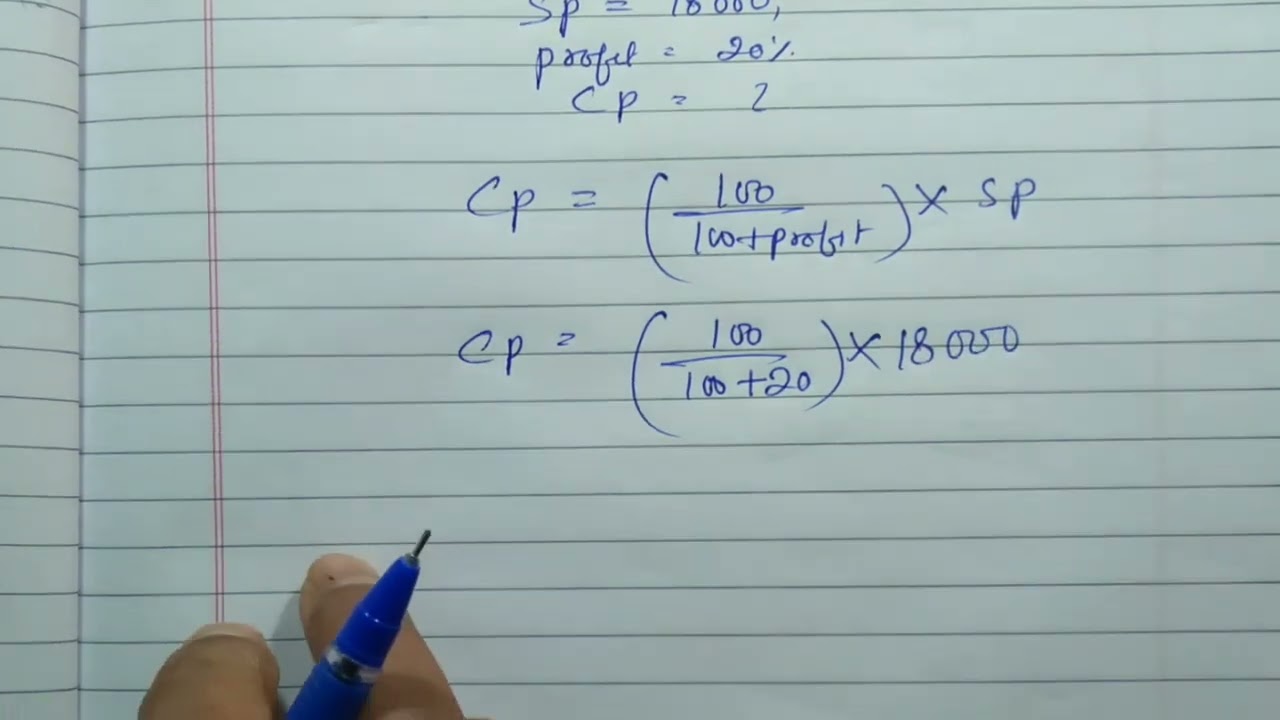 Sp = 18000,
profit = 20%.
Cp = ?
Cp = (100/100+profit) × SP
Cp = (100/100+20) × 18000